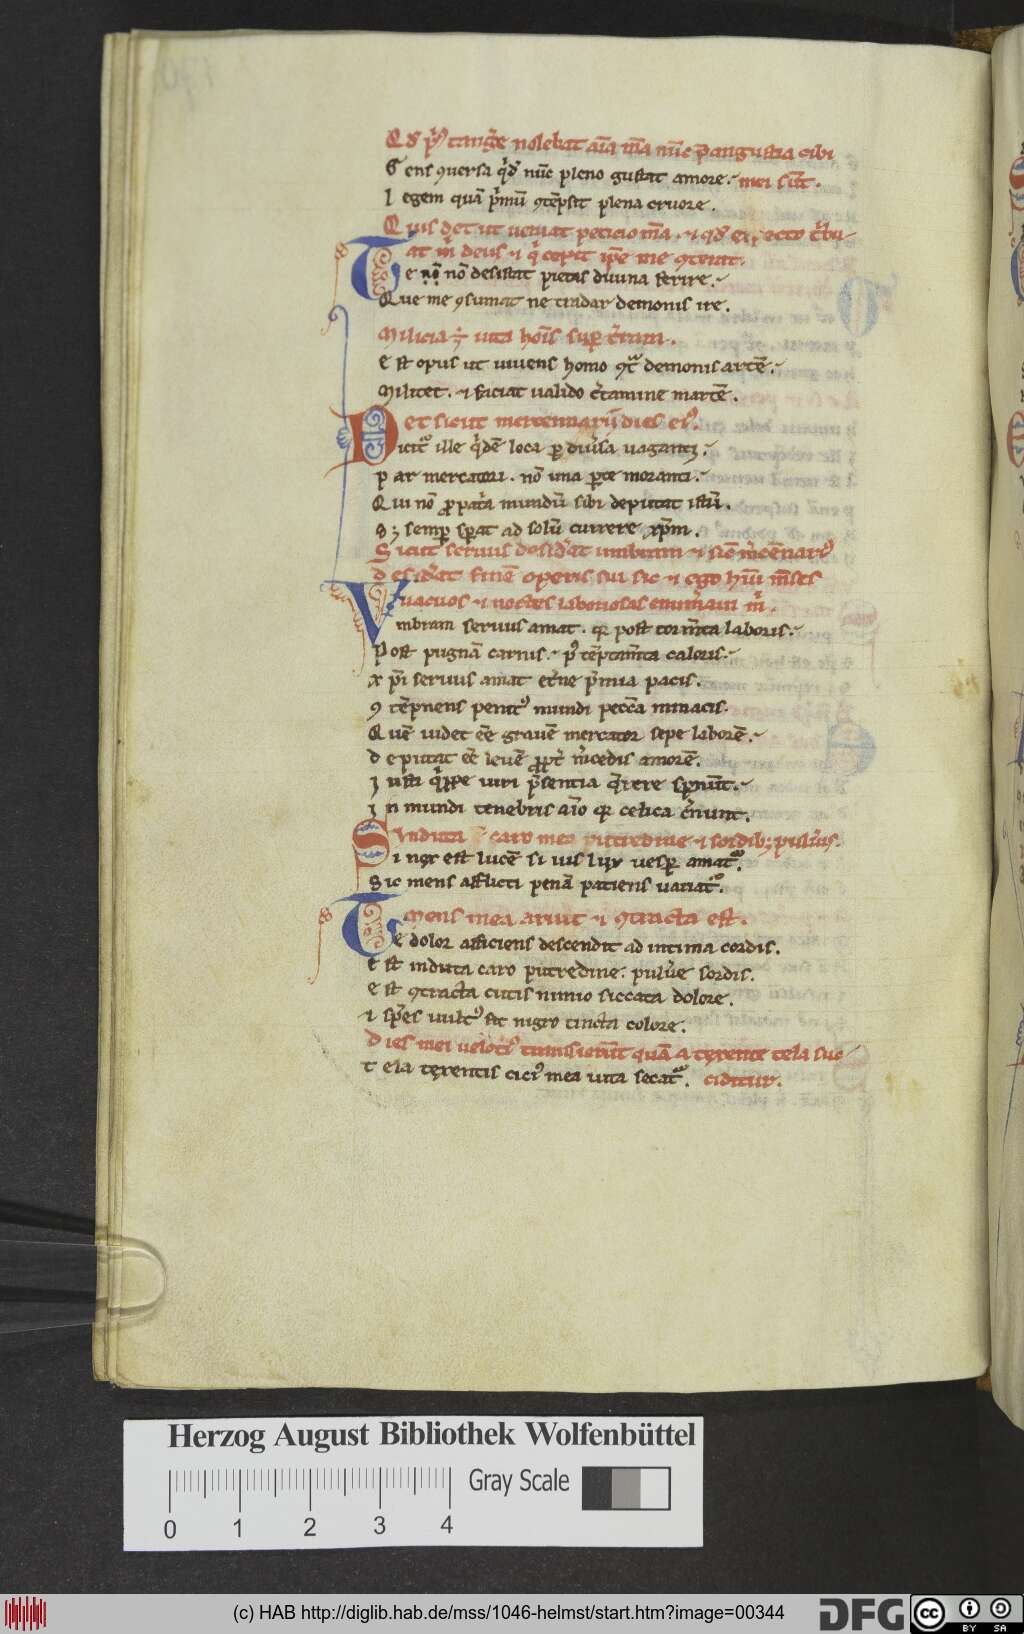 Qd p̄us tangere nolebat aīa mīa nūc p̄ angustia cibi
Gens ꝯuersa qͥd nūc pleno gustat amore. mei sūt.
Legem quā pͥmū ꝯtēpsit plena cruore.
Quis det ut ueniat peticio mīa. ⁊ qd expecto tͥbu
at mͥ deus ⁊ qͥ cepit ip̄e me ꝯterat.
Te nō desistat pietas diuina ferire.
Que me ꝯsumat ne tradar demonis ire.
Milicia ÷ uita hoīs sup̄ t̄ram.
Est opus ut uiuens homo ꝯtͣ demonis artē.
Militet. ⁊ faciat ualido c̄tamine martē.
Et sicut mercennarii dies eiꝰ.
Dicitͦ ille qͥdē loca ꝑ diūsa uaganti
Par mercatori. nō una ꝑte moranti.
Qui nō ꝓ pat̄a mundū sibi deputat istū.
Sꝫ semꝑ sꝑat ad solū currere xp̄m.
Sicut seruus desid̄at umbram ⁊ sic m̄cēnariꝰ
desid̄at finē operis sui sic ⁊ ego hūi m̄ses
uacuos ⁊ noctes laboriosas enum̄aui mͥ.
Vmbram seruus amat. qͥ post torm̄ta laboris.
Post pugnā carnis. pꝰ tēptam̄ta caloris.
Xp̄i seruus amat et̄ne p̄mia pacis.
ꝯtēpnens penitꝰ mundi pecc̄a minacis.
Quē uidet eē grauē mercator sepe laborē.
Deputat eē leuē ꝓpt̄ m̄cedis amorē.
Iusti qͥppe uiri p̄sentia q̄rere sp̄nūt.
In mundi tenebris aīo qͥ celica c̄nunt.
Induta ÷ caro mea putredine ⁊ sordibꝫ pulūis.
Si nox est lucē si uis lux uesꝑ amatͣ.
Sic mens afflicti penā patiens uariatͦ.
Mens mea aruit ⁊ ꝯtracta est.
Te dolor afficiens descendit ad intima cordis.
Est induta caro putredine. pulūe sordis.
Est ꝯtracta cutis nimio siccata dolore.
⁊ sp̄es uultꝰ fit nigro tincta colore.
Dies mei uelociꝰ transierūt quā a texente tela suc
Tela texentis citiꝰ mea uita secatͣ. ciditur.
Herzog August Bibliothek Wolfenbüttel
Gray Scale
0 1 2 3 4
(c) HAB http://diglib.hab.de/mss/1046-helmst/start.htm?image=00344
DFG
cc
BY SA